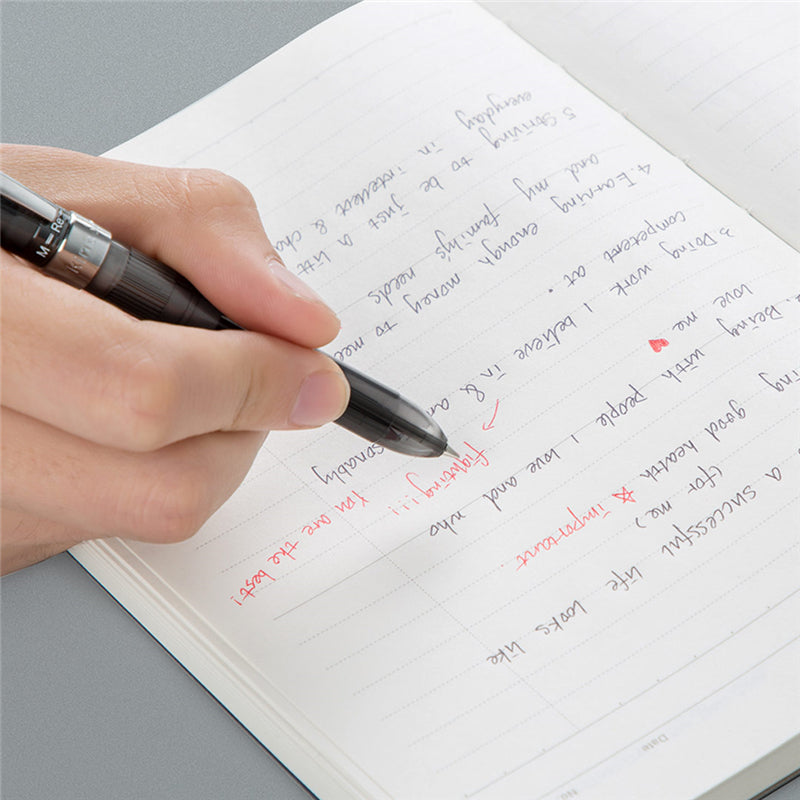 No.
Date
a successful life looks like
(for me)
good health ☆ important
2. Being with people I love and who
love me ♥
3 Doing work I believe in &
competent at.
fighting!!!
You are the best!
4 Earning enough money to mee
and my family's needs
5 Striving to be just a litt
in intellect & cha
everyday